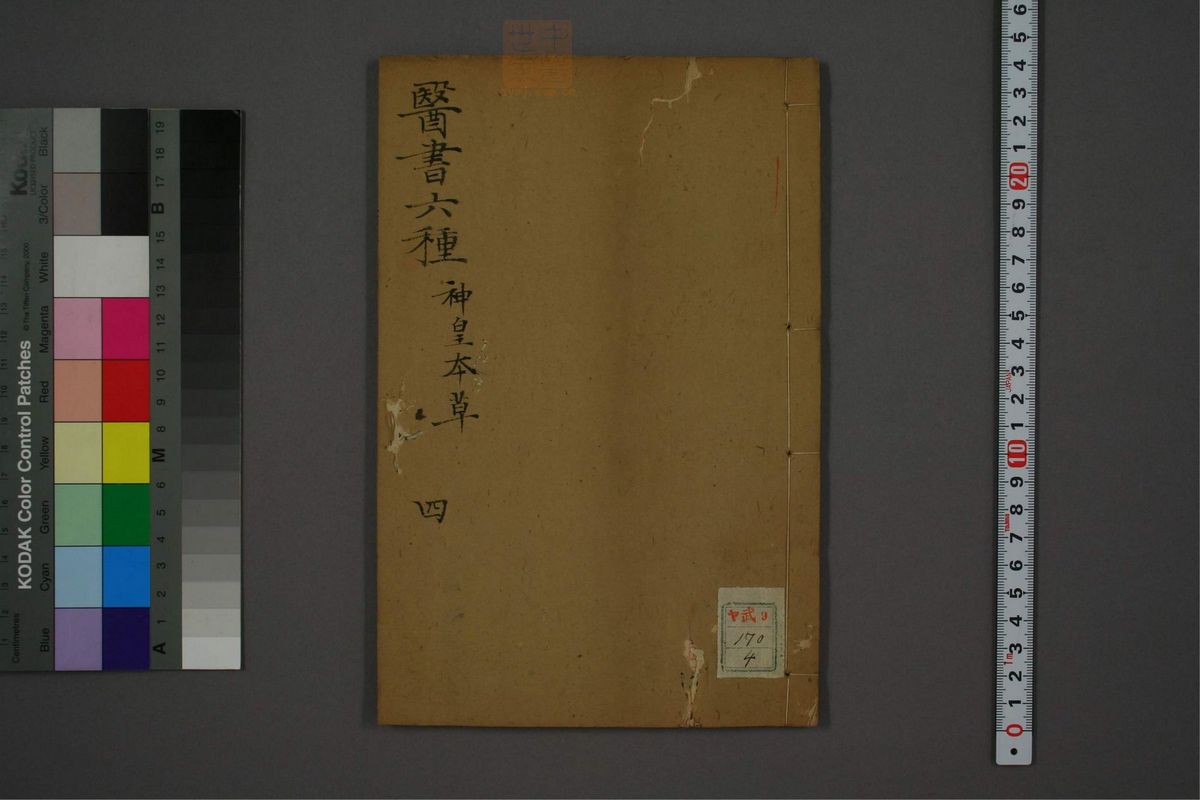 醫書六種
神皇本草
四
ヤ武9
170
4
KODAK Color Control Patches
© The Tiffen Company, 2000
Kodak
LICENSED PRODUCT
Centimetres
Blue
Cyan
Green
Yellow
Red
Magenta
White
3/Color
Black
A 1 2 3 4 5 6 M 8 9 10 11 12 13 14 15 B 17 18 19
6
5
4
3
2
1
20
9
8
7
6
5
4
3
2
1
10
9
8
7
6
5
4
3
2
1
0
JAPAN
1m